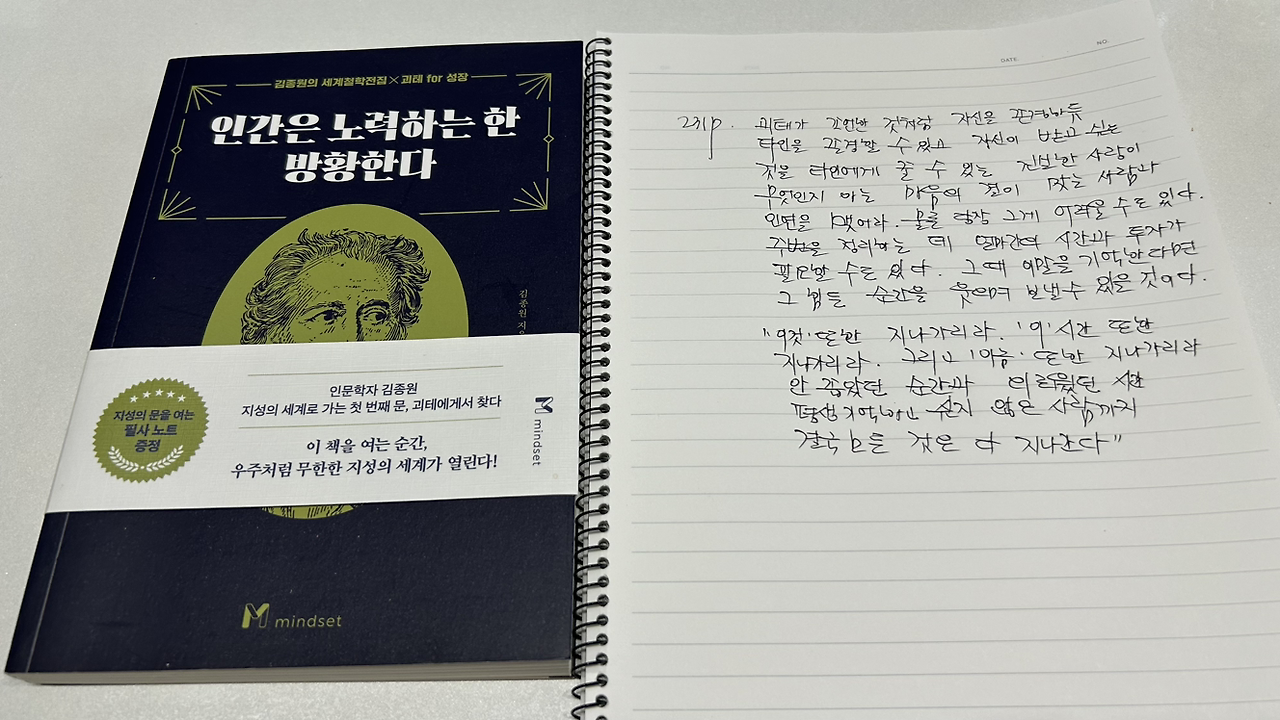 김종원의 세계철학전집×괴테 for 성장
인간은 노력하는 한
방황한다
김종원 지음
인문학자 김종원
지성의 세계로 가는 첫 번째 문, 괴테에게서 찾다
이 책을 여는 순간,
우주처럼 무한한 지성의 세계가 열린다!
지성의 문을 여는
필사 노트
증정
mindset
M mindset
DATE
NO.
231p. 괴테가 조언한 것처럼 자신을 존경하듯
타인을 존경할 수 있고 자신이 받고 싶은
것을 타인에게 줄 수 있는 진실한 사람이
무엇인지 아는 마음의 결이 맞는 사람과
인연을 맺어라. 물론 당장 그게 어려울 수도 있다.
주변을 정리하는 데 얼마간의 시간과 투자가
필요할 수도 있다. 그때 이 말을 기억한다면
그 힘든 순간을 웃으며 보낼 수 있을 것이다.
"'이것' 또한 지나가리라. '이' 시간 또한
지나가리라. 그리고 '마음' 또한 지나가리라
안 좋았던 순간과 괴로웠던
평생 기억하고 싶지 않은 사람까지
결국 모든 것은 다 지나간다"